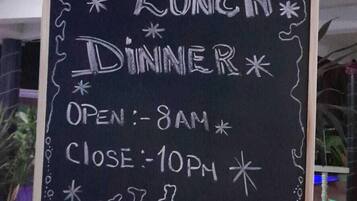 LUNCH
DINNER
OPEN :- 8AM
CLOSE :- 10PM